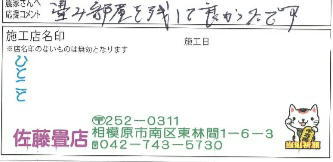 農家さんへ
応援コメント 畳み部屋を残して良かったです
施工店名印
※店名印のないものは無効となります
施工日
ひとこと
佐藤畳店
〒252-0311
相模原市南区東林間1-6-3
☎042-743-5730